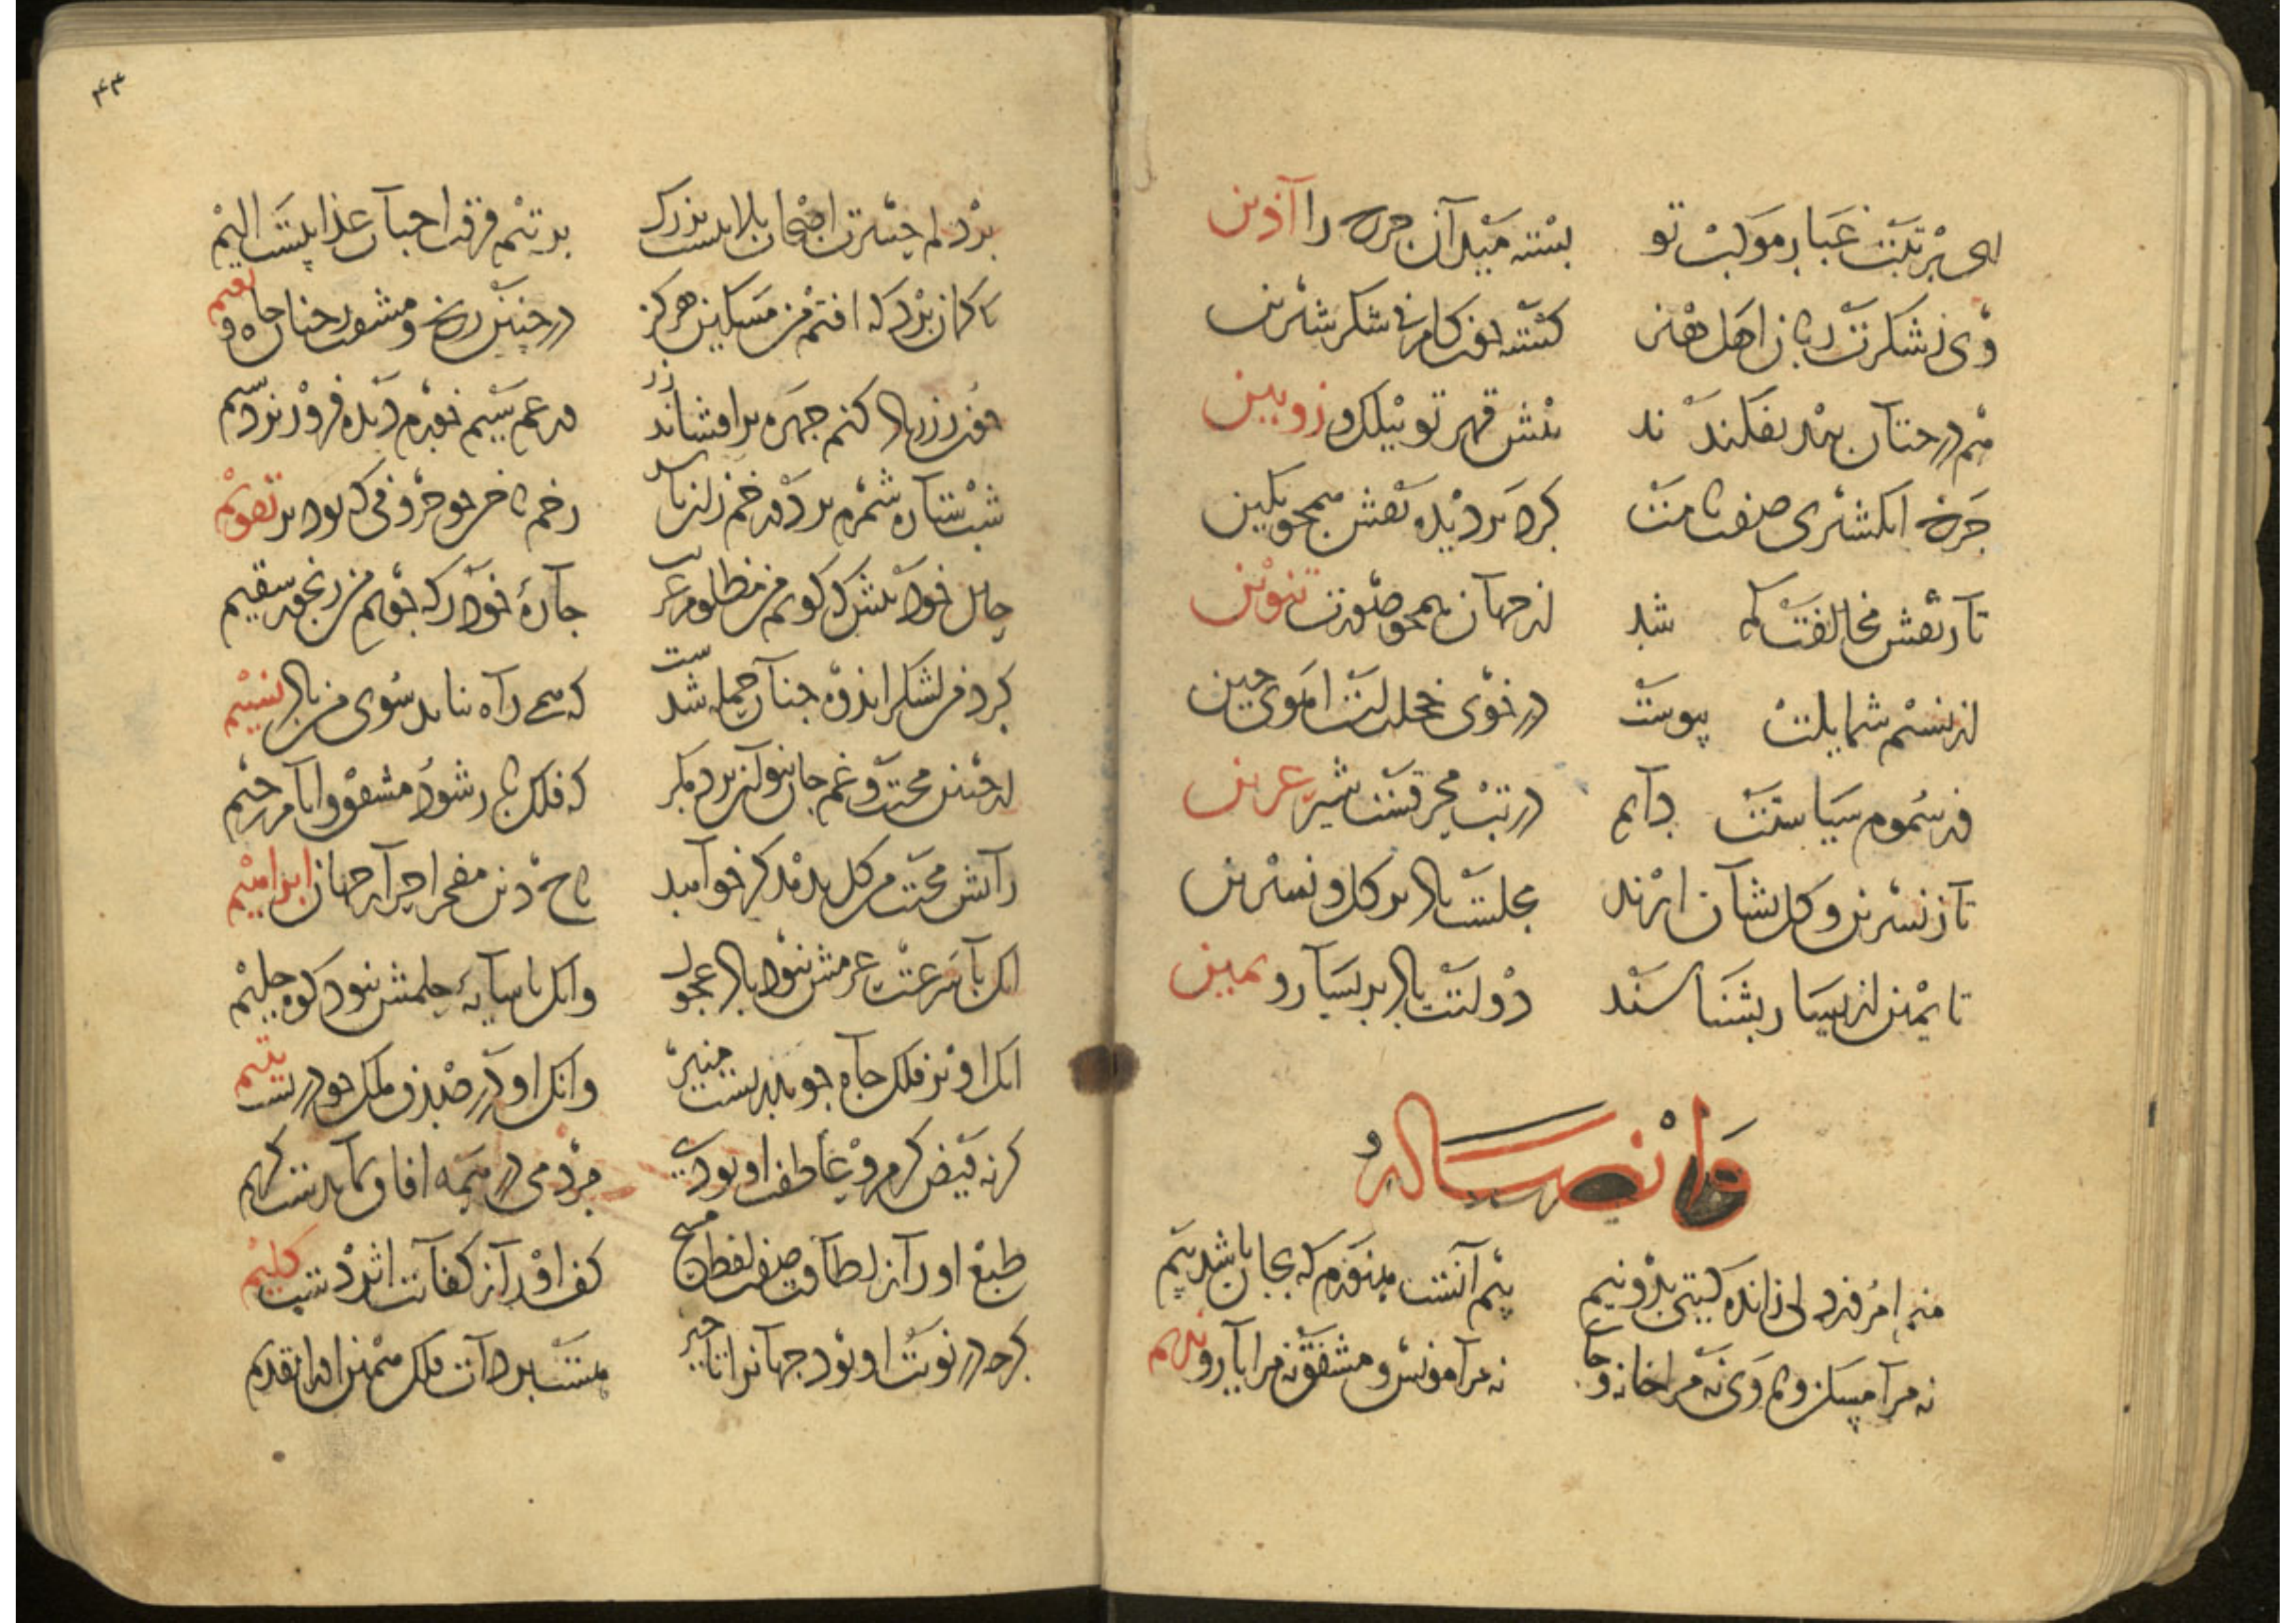 ای بر تبت غبار موکب تو بسته میل آن جره را آذین
وی ز شکرت زبان اهل هنر کشته چون کام نی شکر شیرین
هم درختان بفکند ند بیش قهر تو بیلک و زوبین
جرخ انکشتری صفت نامت کرد بر دیده نقش همجو نکین
تا ز نقش مخالفت کم شد از جهان همجو صورت تنوین
از نسیم شمایلت پیوست در خوی خجلت است اهوی جین
وز سموم سیاستت دایم در تب محرقست شیر عرین
تا ز نسرین و کل نشان ارند مجلست باد بر کل و نسرین
تا یمین از یسار بشناسند دولتت باد بر یسار و یمین
وله ایضا
منم امروز دلی زانده کیتی بدو نیم بیم آنست هنوزم که بجان باشد بیم
نه مرا مسکن و ماوی نه مرا خانه و جا نه مرا مونس و مشفق نه مرا یار و ندیم
۴۳
بر دلم حسرت اصحاب بلاییست بزرک بر تنم فرقت احباب عذابیست الیم
تا کمان برد که افتم من مسکین هرکز در جنین رنج و مشقت ز جنان جاه و نعیم
چون زر زاد کنم جهره بر افشاند زر در غم سیم خورم دیده فرو ریزد سیم
شب ستاره شمرم بر در و خم ز از باد رخم ناخن جو حروفی که بود بر تقویم
حال خود بیش که کویم من مظلوم غریب جارهٔ خود ز که جویم من رنجور سقیم
کرد من لشکر اندوه جنان حمله شدست که همی راه نیابد سوی من باد نسیم
از جنین محنت و غم جان نتوان برد مکر که فلک یار شود مشفق و ایام رحیم
ز آتش محنت من کل بدمد کر خواهد تاج دین مفخر احرار جهان ابراهیم
انک با سرعت عزمش نبود باد عجول وانک با سایهٔ حلمش نبود کوه حلیم
انک او بر فلک جاه جو بدریست منیر وانک او در صدف ملک جو دریست یتیم
کر نه فیض کرم و عاطفت او بودی مردمی در همه افاق نماندست کریم
طبع او را ز لطافت صفت لفظ مسیح کف او را ز کفایت اثر دست کلیم
کرجه در نوبت او بود جهانرا تاخیر هست بر ذات فلک همتش او را تقدیم